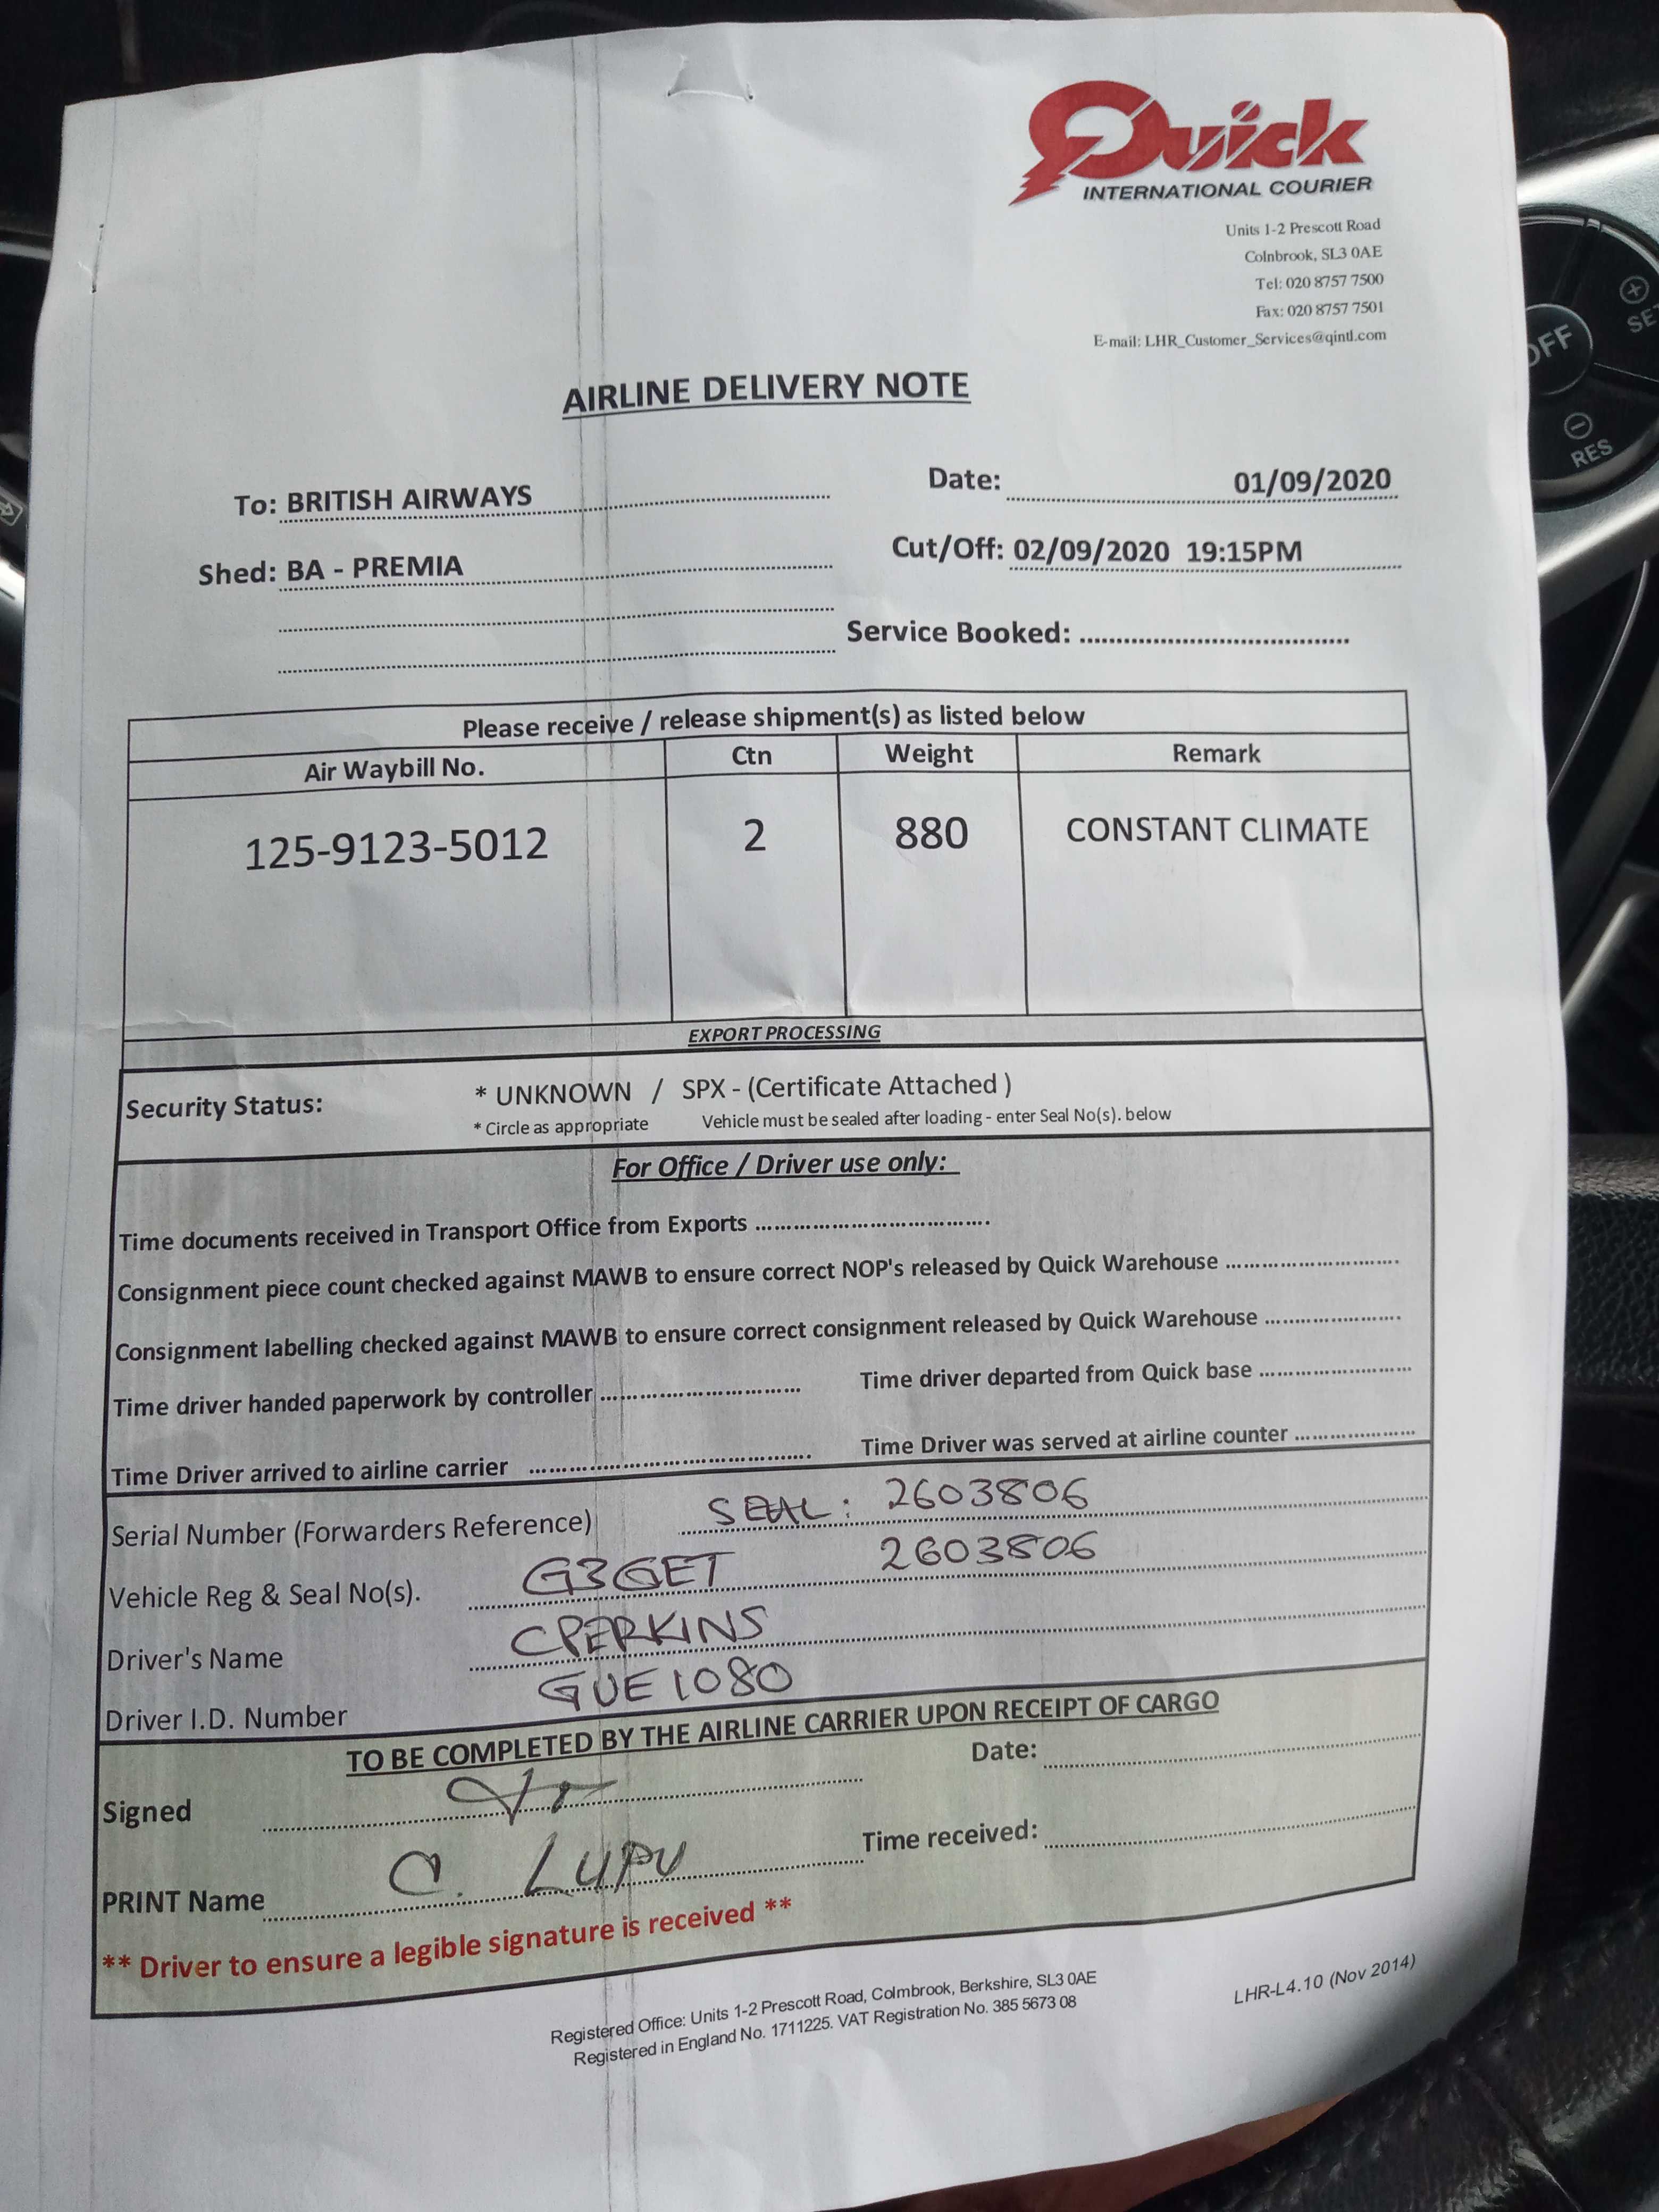 Quick
INTERNATIONAL COURIER
Units 1-2 Prescott Road
Colnbrook, SL3 0AE
Tel: 020 8757 7500
Fax: 020 8757 7501
E-mail: LHR_Customer_Services@qintl.com
AIRLINE DELIVERY NOTE
To: BRITISH AIRWAYS
Date: 01/09/2020
Shed: BA - PREMIA
Cut/Off: 02/09/2020 19:15PM
Service Booked:
Please receive / release shipment(s) as listed below
Air Waybill No. Ctn Weight Remark
125-9123-5012 2 880 CONSTANT CLIMATE
EXPORT PROCESSING
Security Status: * UNKNOWN / SPX - (Certificate Attached )
* Circle as appropriate Vehicle must be sealed after loading - enter Seal No(s). below
For Office / Driver use only:
Time documents received in Transport Office from Exports
Consignment piece count checked against MAWB to ensure correct NOP's released by Quick Warehouse
Consignment labelling checked against MAWB to ensure correct consignment released by Quick Warehouse
Time driver handed paperwork by controller Time driver departed from Quick base
Time Driver arrived to airline carrier Time Driver was served at airline counter
Serial Number (Forwarders Reference) SEAL: 2603806
Vehicle Reg & Seal No(s). G3GET 2603806
Driver's Name CPERKINS
Driver I.D. Number GUE1080
TO BE COMPLETED BY THE AIRLINE CARRIER UPON RECEIPT OF CARGO
Signed Date:
PRINT Name C. LUPU Time received:
** Driver to ensure a legible signature is received **
Registered Office: Units 1-2 Prescott Road, Colmbrook, Berkshire, SL3 0AE
Registered in England No. 1711225. VAT Registration No. 385 5673 08
LHR-L4.10 (Nov 2014)
OFF
SET
RES